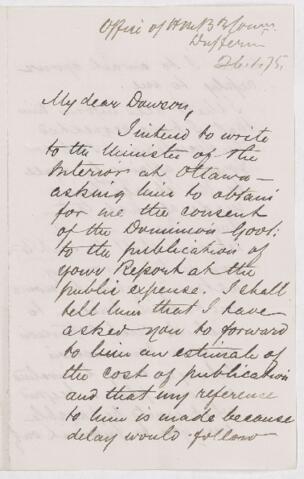 Office of H.M. B. Comn.
Dufferin
26.1.75.
My dear Dawson,
I intend to write
to the Minister of the
Interior at Ottawa –
asking him to obtain
for me the consent
of the Dominion Govt:
to the publication of
your Report at the
public expense. I shall
tell him that I have
asked you to forward
to him an estimate of
the cost of publication
and that my reference
to him is made because
delay would follow